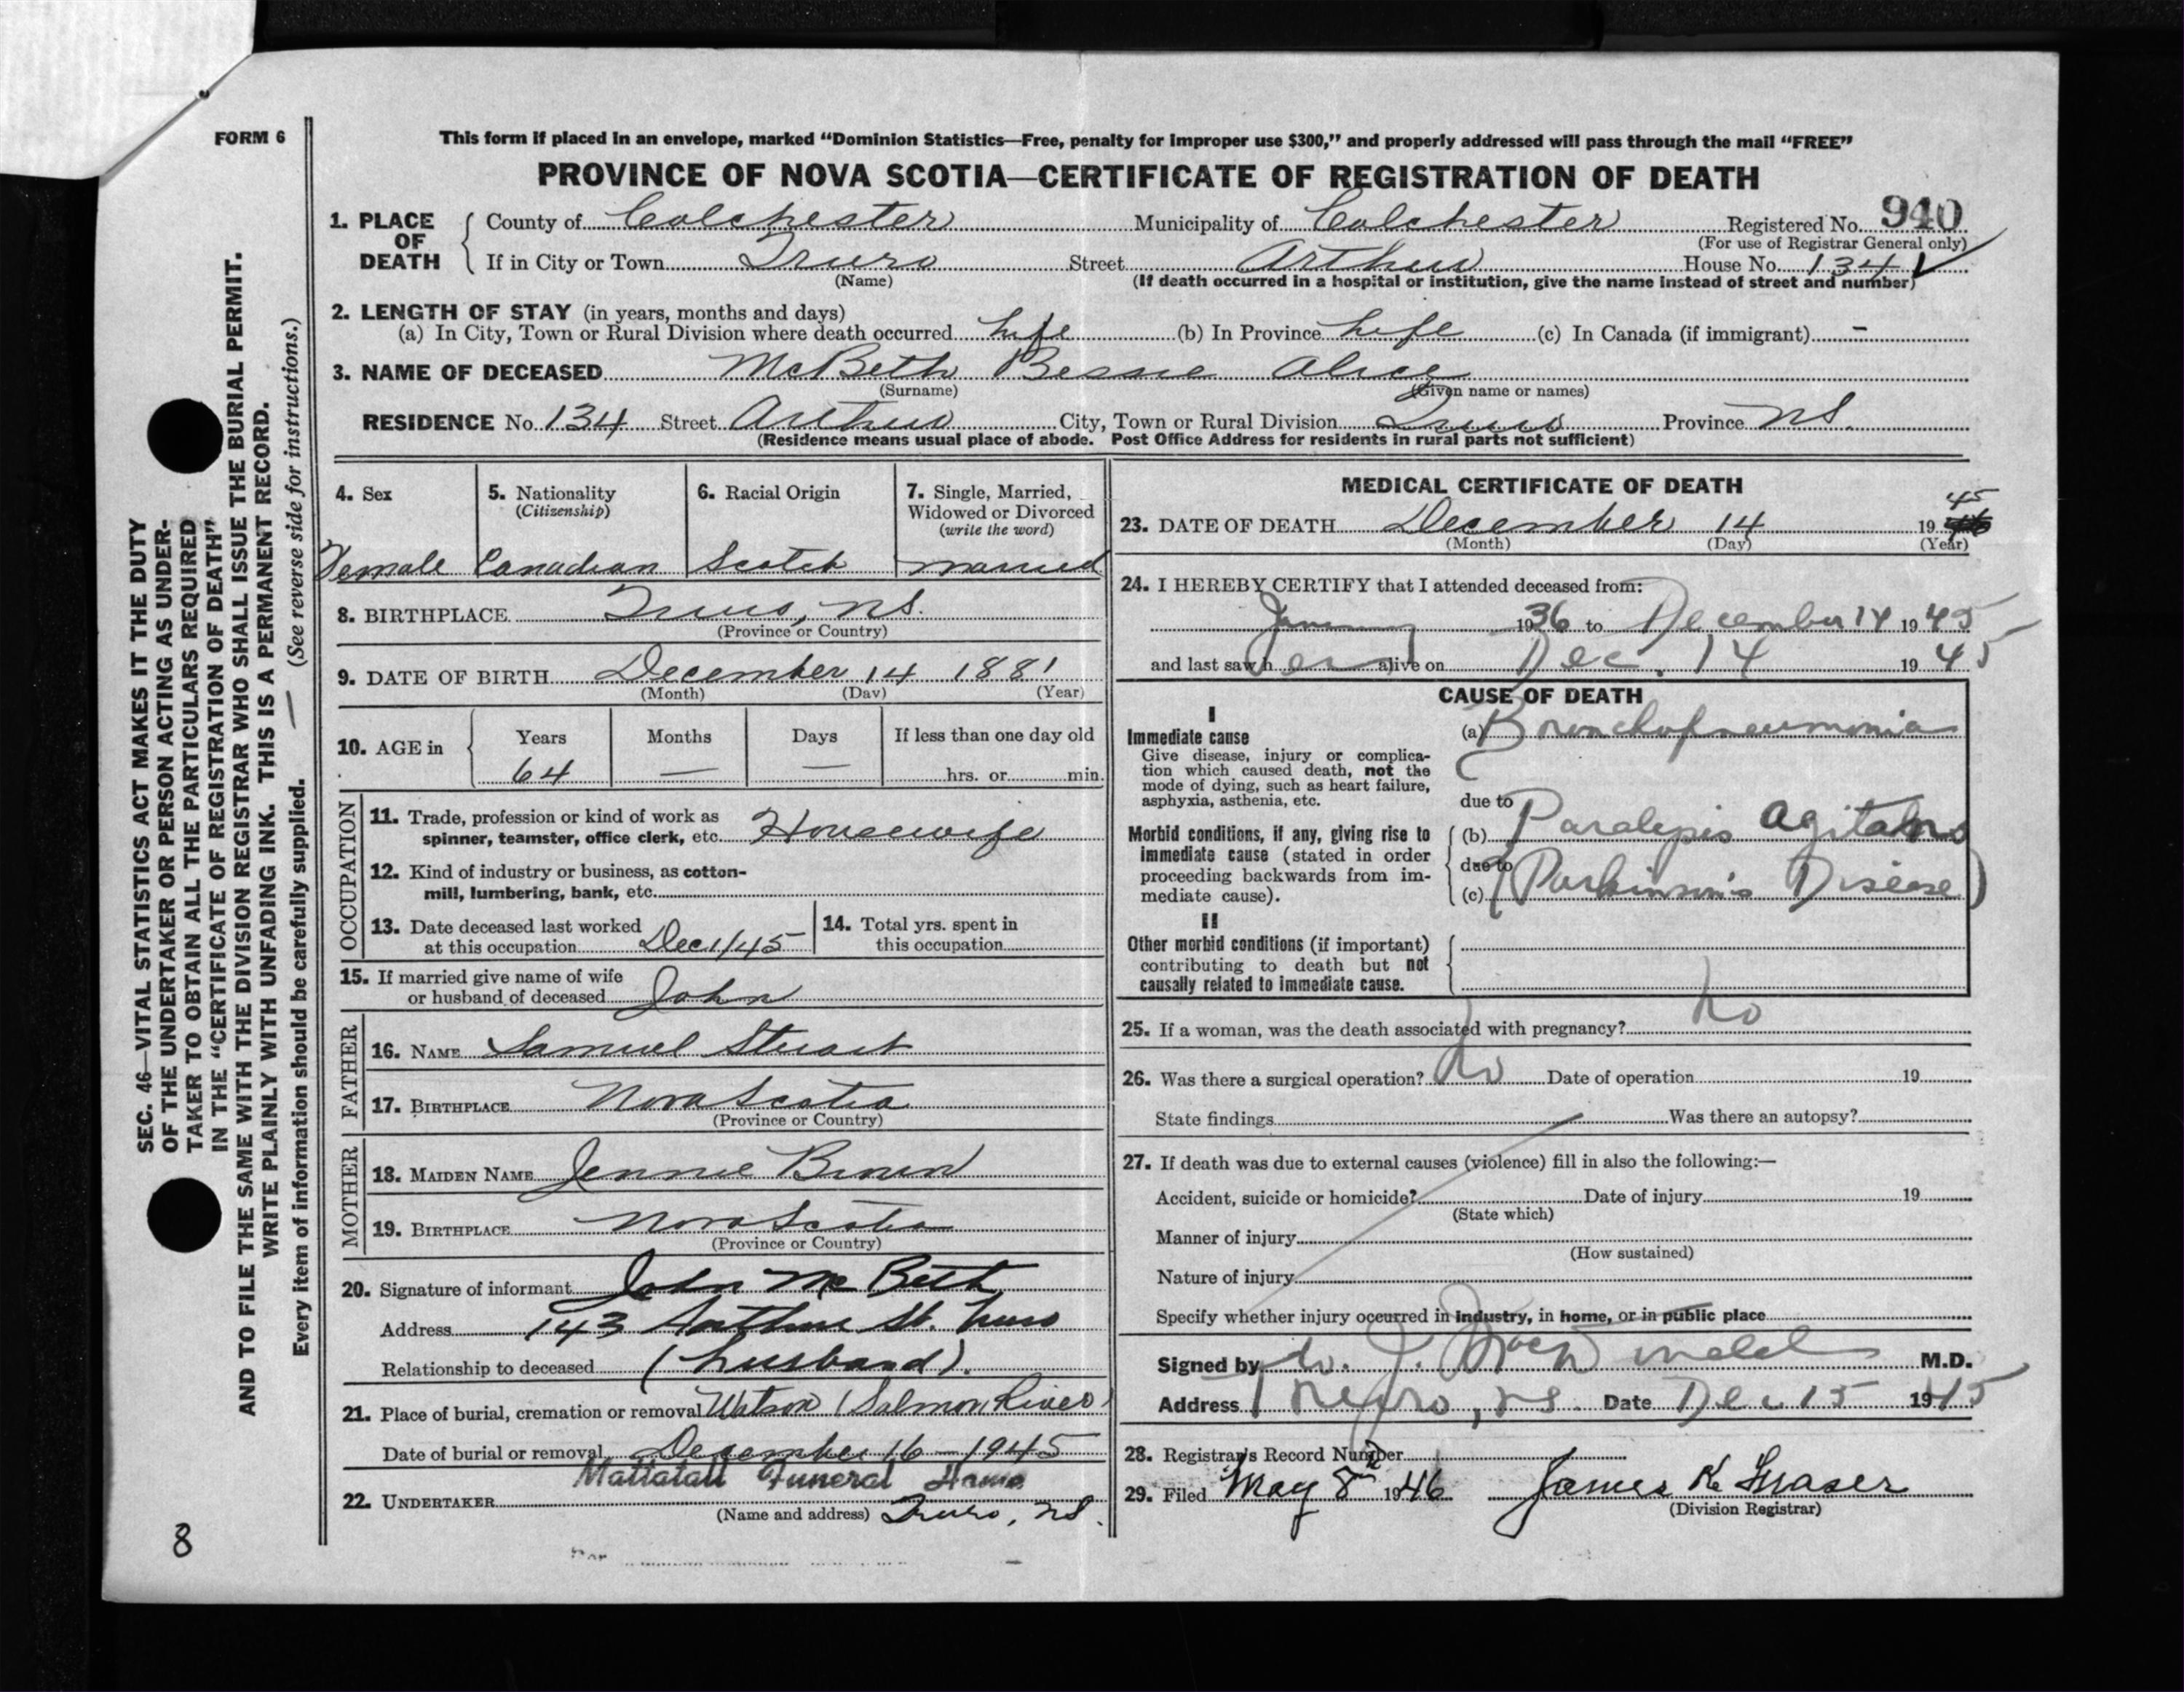 FORM 6
This form if placed in an envelope, marked “Dominion Statistics—Free, penalty for improper use $300,” and properly addressed will pass through the mail “FREE”
PROVINCE OF NOVA SCOTIA—CERTIFICATE OF REGISTRATION OF DEATH
1. PLACE OF DEATH County of Colchester Municipality of Colchester Registered No. 940
(For use of Registrar General only)
If in City or Town Truro Street Arthur House No. 134 ✓
(Name) (If death occurred in a hospital or institution, give the name instead of street and number)
2. LENGTH OF STAY (in years, months and days)
(a) In City, Town or Rural Division where death occurred life (b) In Province life (c) In Canada (if immigrant) –
3. NAME OF DECEASED McBeth Bessie Alice
(Surname) (Given name or names)
RESIDENCE No. 134 Street Arthur City, Town or Rural Division Truro Province N.S.
(Residence means usual place of abode. Post Office Address for residents in rural parts not sufficient)
4. Sex
Female
5. Nationality
(Citizenship)
Canadian
6. Racial Origin
Scotch
7. Single, Married,
Widowed or Divorced
(write the word)
married
8. BIRTHPLACE Truro, N.S.
(Province or Country)
9. DATE OF BIRTH December 14 1881
(Month) (Day) (Year)
10. AGE in Years Months Days If less than one day old
64 — — hrs. or min.
OCCUPATION
11. Trade, profession or kind of work as
spinner, teamster, office clerk, etc. Housewife
12. Kind of industry or business, as cotton-
mill, lumbering, bank, etc.
13. Date deceased last worked
at this occupation Dec 1/45
14. Total yrs. spent in
this occupation
15. If married give name of wife
or husband of deceased John
FATHER
16. NAME Samuel Stuart
17. BIRTHPLACE Nova Scotia
(Province or Country)
MOTHER
18. MAIDEN NAME Jennie Brown
19. BIRTHPLACE Nova Scotia
(Province or Country)
20. Signature of informant John McBeth
Address 143 Arthur St. Truro
Relationship to deceased (husband).
21. Place of burial, cremation or removal Watson (Salmon River)
Date of burial or removal December 16 – 1945
Mattatall Funeral Home
22. UNDERTAKER
(Name and address) Truro, N.S.
MEDICAL CERTIFICATE OF DEATH
23. DATE OF DEATH December 14 19 45
(Month) (Day) (Year)
24. I HEREBY CERTIFY that I attended deceased from:
January 1936 to December 14 1945
and last saw her alive on Dec. 14 1945
CAUSE OF DEATH
I
Immediate cause
Give disease, injury or complica-
tion which caused death, not the
mode of dying, such as heart failure,
asphyxia, asthenia, etc.
(a) Bronchopneumonia
due to
Morbid conditions, if any, giving rise to
immediate cause (stated in order
proceeding backwards from im-
mediate cause).
(b) Paralysis Agitans
due to
(c) (Parkinson's Disease)
II
Other morbid conditions (if important)
contributing to death but not
causally related to immediate cause.
25. If a woman, was the death associated with pregnancy? no
26. Was there a surgical operation? No Date of operation 19
State findings Was there an autopsy?
27. If death was due to external causes (violence) fill in also the following:—
Accident, suicide or homicide? Date of injury 19
(State which)
Manner of injury
(How sustained)
Nature of injury
Specify whether injury occurred in industry, in home, or in public place
Signed by M.D.
Address Truro, N.S. Date Dec 15 1945
28. Registrar's Record Number
29. Filed May 8 1946 James K. Fraser
(Division Registrar)
SEC. 46—VITAL STATISTICS ACT MAKES IT THE DUTY
OF THE UNDERTAKER OR PERSON ACTING AS UNDER-
TAKER TO OBTAIN ALL THE PARTICULARS REQUIRED
IN THE “CERTIFICATE OF REGISTRATION OF DEATH”
AND TO FILE THE SAME WITH THE DIVISION REGISTRAR WHO SHALL ISSUE THE BURIAL PERMIT.
WRITE PLAINLY WITH UNFADING INK. THIS IS A PERMANENT RECORD.
Every item of information should be carefully supplied. — (See reverse side for instructions.)
8